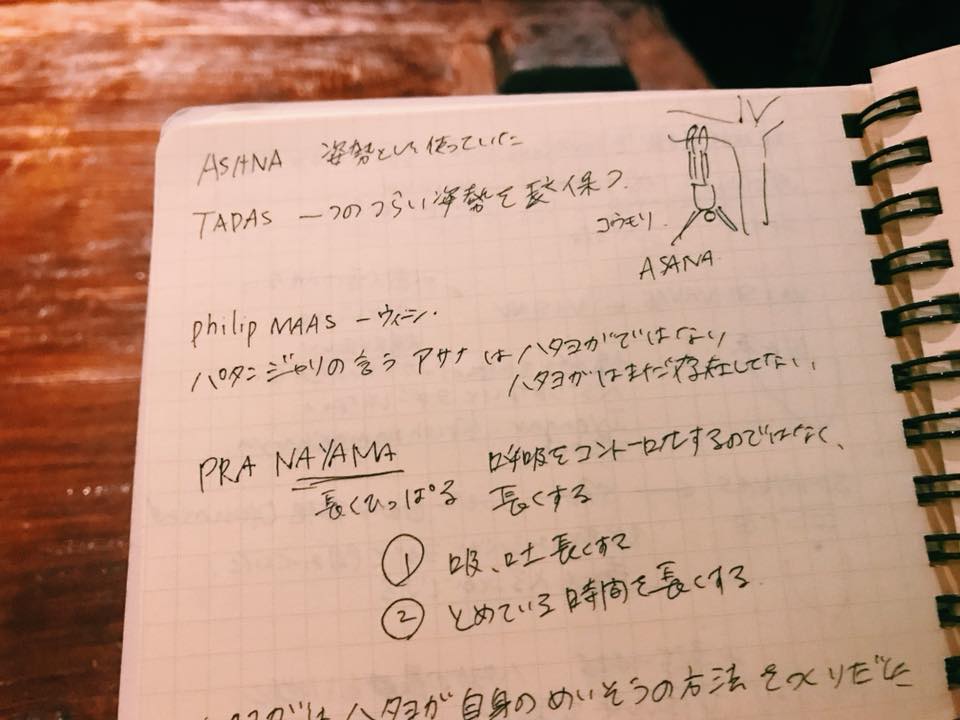 ASANA 姿勢として使っていた
TAPAS 一つのつらい姿勢を長く保つ
コウモリ
ASANA
philip MAAS ーウィーン.
パタンジャリの言う アサナ は ハタヨガではない
ハタヨガはまだ存在してない,
PRANAYAMA 呼吸をコントロールするのではなく、
長くひっぱる 長くする
① 吸、吐 長くする
② とめている時間を長くする
ハタヨガ自身のめいそうの方法をつくりだした